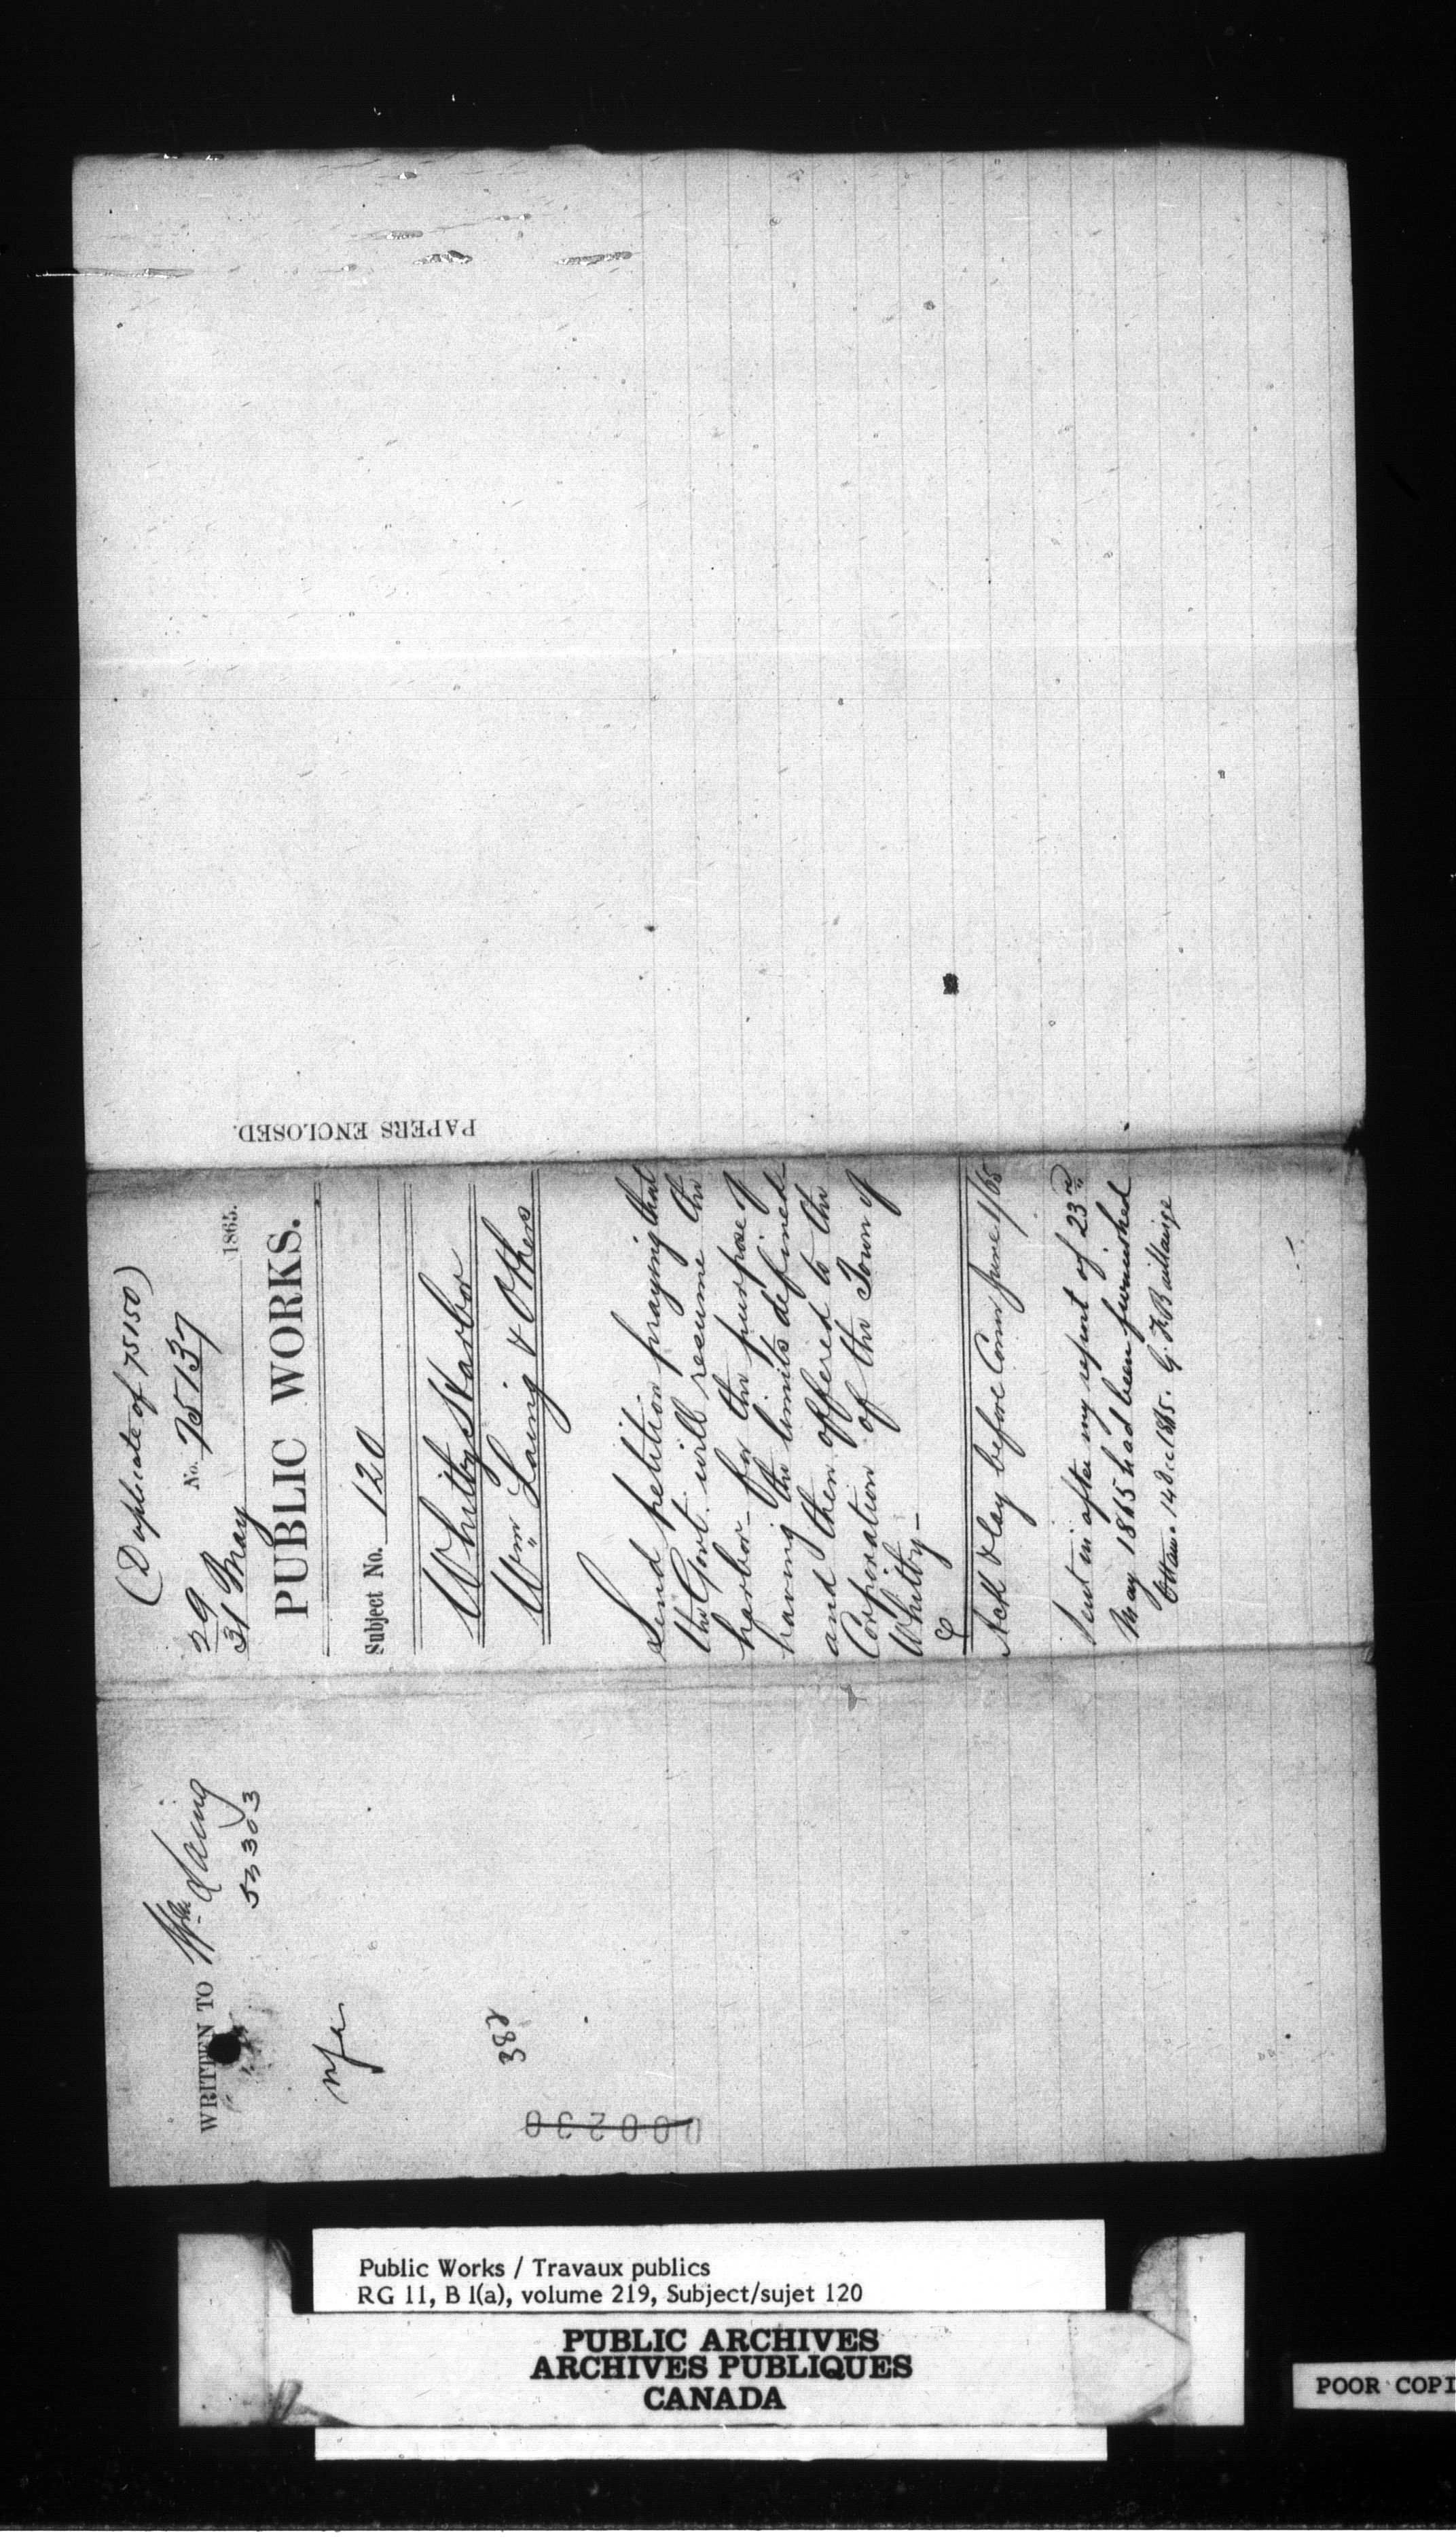 (Duplicate of 75150)
No. 75137
29
31 May 1865.
PUBLIC WORKS.
Subject No. 120
Whitby Harbor
Wm Laing & Others
Send petition praying that
the Govt. will resume the
harbor - for the purpose of
having the limits defined
and then offered to the
Corporation of the Town of
Whitby -
Ack & lay before Comr June 1/65
Sent in after my report of 23rd
May 1865 had been furnished
Ottawa 14 Dec 1865. G. F. Baillairge
PAPERS ENCLOSED.
WRITTEN TO Wm Laing
53303
nfa
382
000230
Public Works / Travaux publics
RG 11, B 1(a), volume 219, Subject/sujet 120
PUBLIC ARCHIVES
ARCHIVES PUBLIQUES
CANADA
POOR COPI